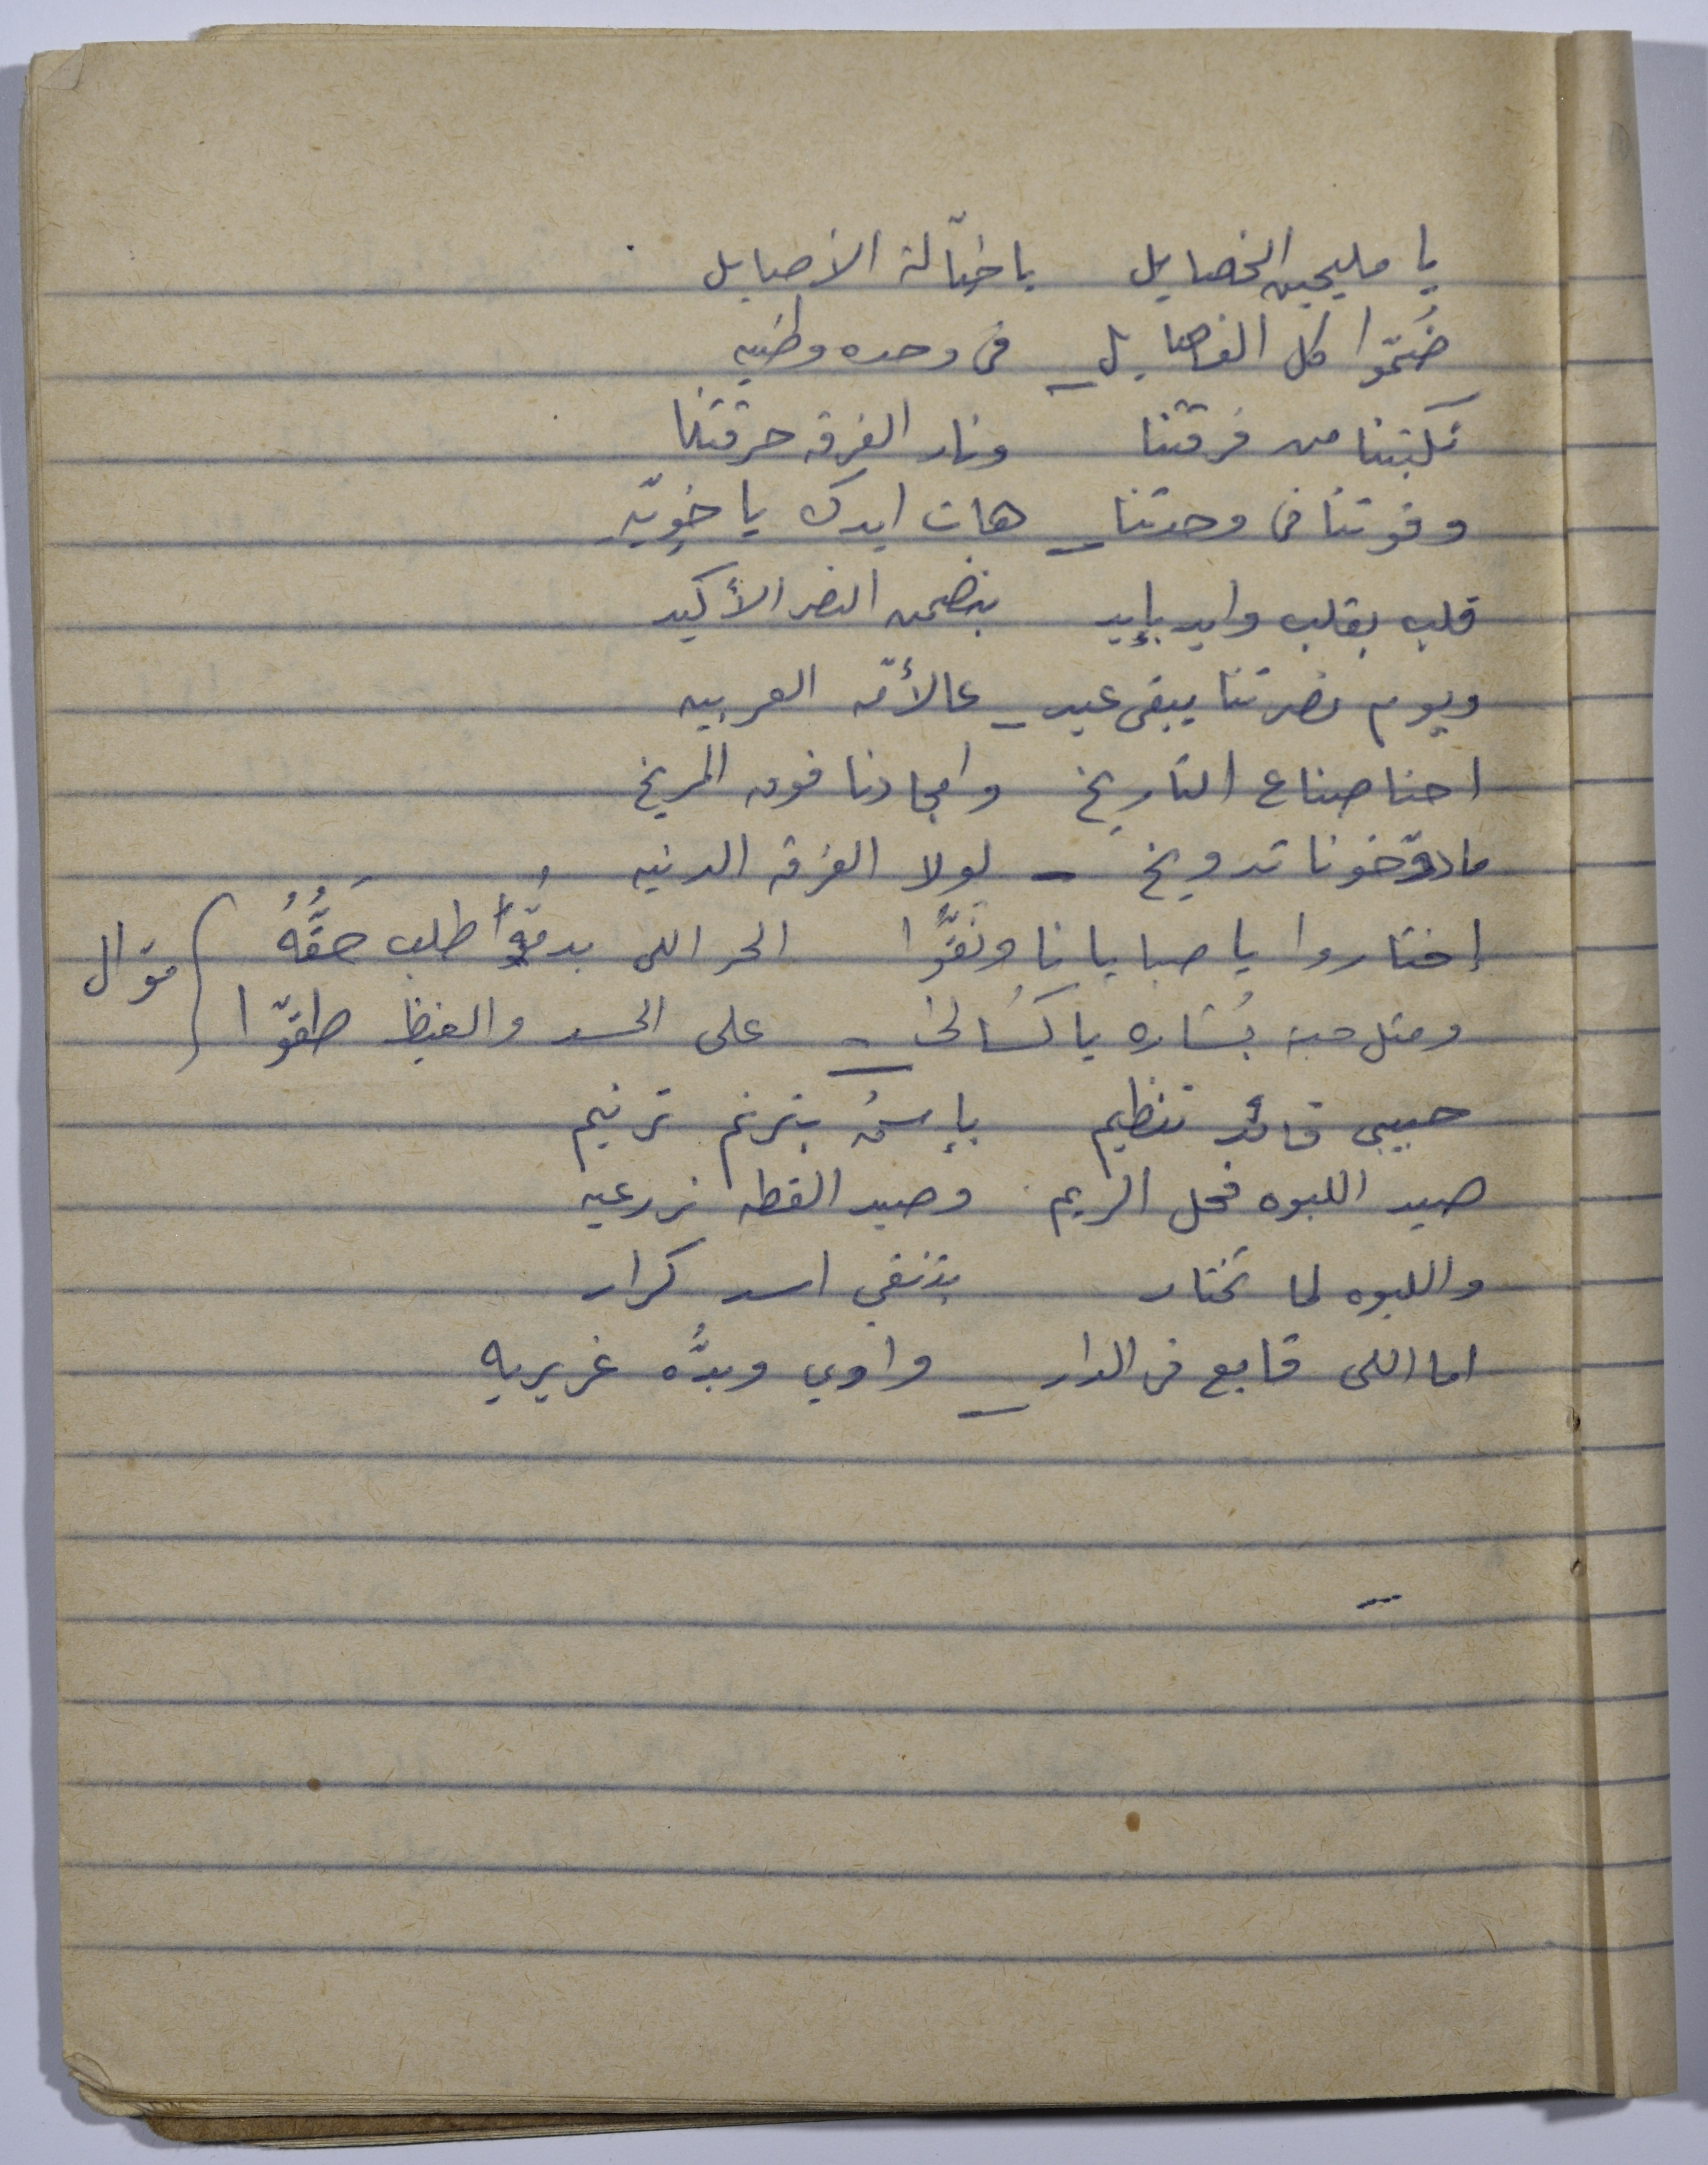 يا مليحين الخصايل يا خيّالة الاصايل
ضُمّوا كل الفصايل _ فى وحده وطنيه
نكبتنا من فرقتنا ونار الفرقه حرقتنا
وقوتنا فى وحدتنا _ هات ايدك يا خويّه
قلب بقلب وايد بإيد بنضمن النصر الأكيد
ويوم نصرتنا يبقى عيد _ عالأمّه العربيه
احنا صناع التاريخ وامجادنا فوق المريخ
مادوّخونا تدويخ _ لولا الفرقه الدنيه
إختاروا يا صبايانا ونقّوا الحر اللى بدمُّه أطلب حَقُّهُ ) موّال
ومثل حبة بُشاره يا كُسالى _ على الحسد والغيظ طقوّا
حبيبى قائد تنظيم بإسمُه بترنم ترنيم
صيد اللبوه فحل الريم وصيد القطه زرعيه
واللبوه لما تختار بتنقي اسد كرار
اما اللى قابع فى الدار _ واوي وبدُّه غريريه